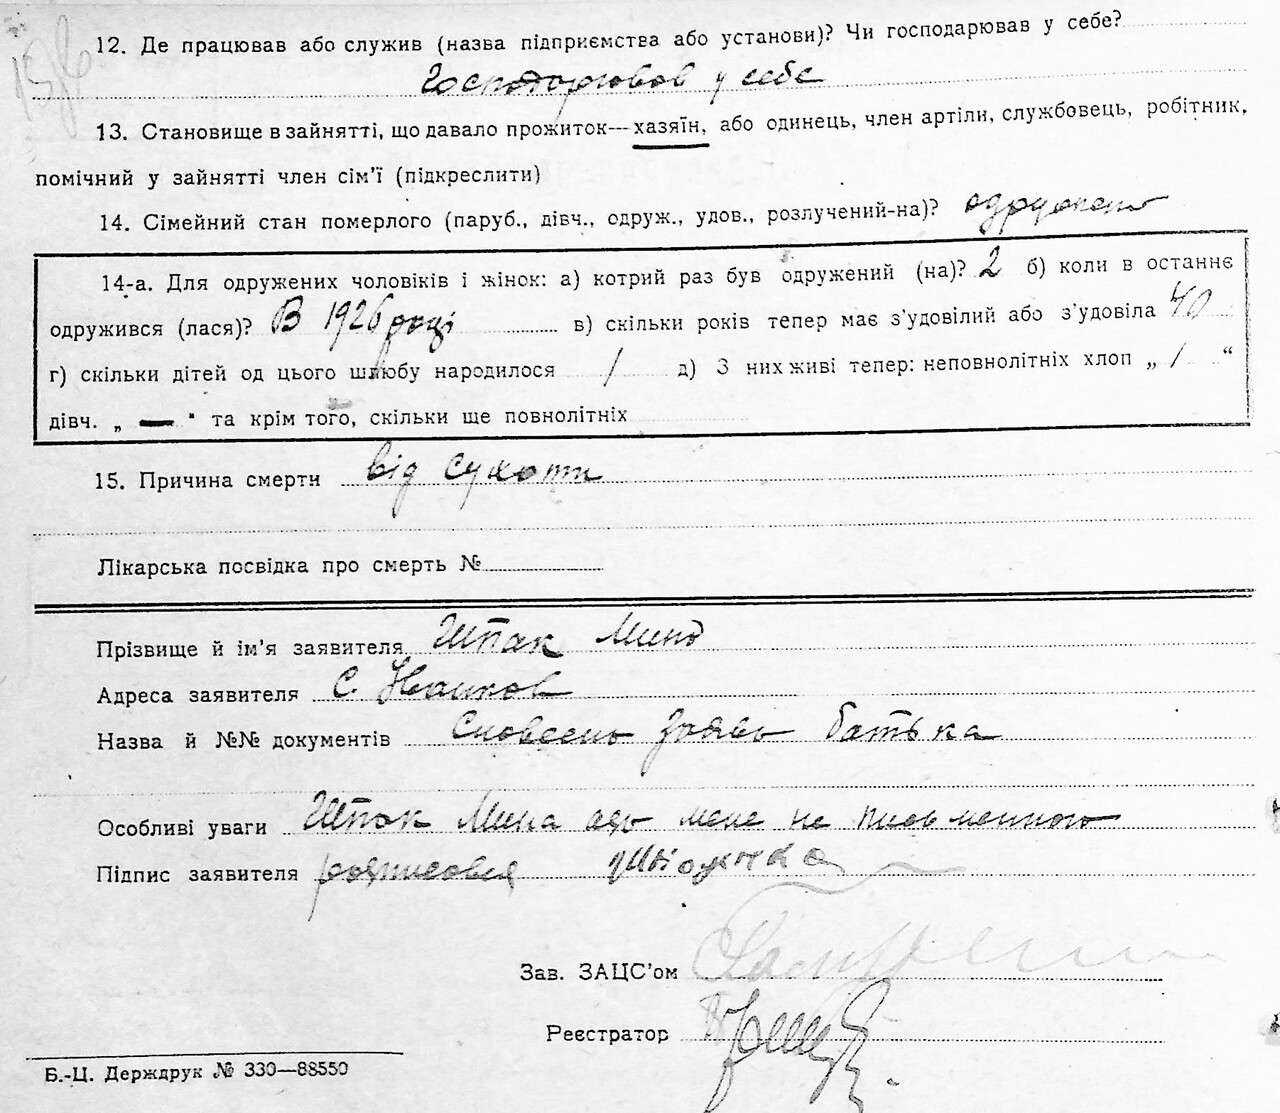 12. Де працював або служив (назва підприємства або установи)? Чи господарював у себе?
Господарював у себе
13. Становище в зайнятті, що давало прожиток—хазяїн, або одинець, член артіли, службовець, робітник,
помічний у зайнятті член сім'ї (підкреслити)
14. Сімейний стан померлого (паруб., дівч., одруж., удов., розлучений-на)?
14-а. Для одружених чоловіків і жінок: а) котрий раз був одружений (на)? 2 б) коли в останнє
одружився (лася)? В 1926 році в) скільки років тепер має з'удовілий або з'удовіла 40
г) скільки дітей од цього шлюбу народилося / д) З них живі тепер: неповнолітніх хлоп „ / “
дівч. „ — " та крім того, скільки ще повнолітніх
15. Причина смерти від сухоти
Лікарська посвідка про смерть №
Прізвище й ім'я заявителя Шпак Мина
Адреса заявителя с.
Назва й №№ документів батька
Особливі уваги Шпак Мина не письменного
Підпис заявителя
Зав. ЗАЦС'ом
Реєстратор
Б.-Ц. Держдрук № 330—88550